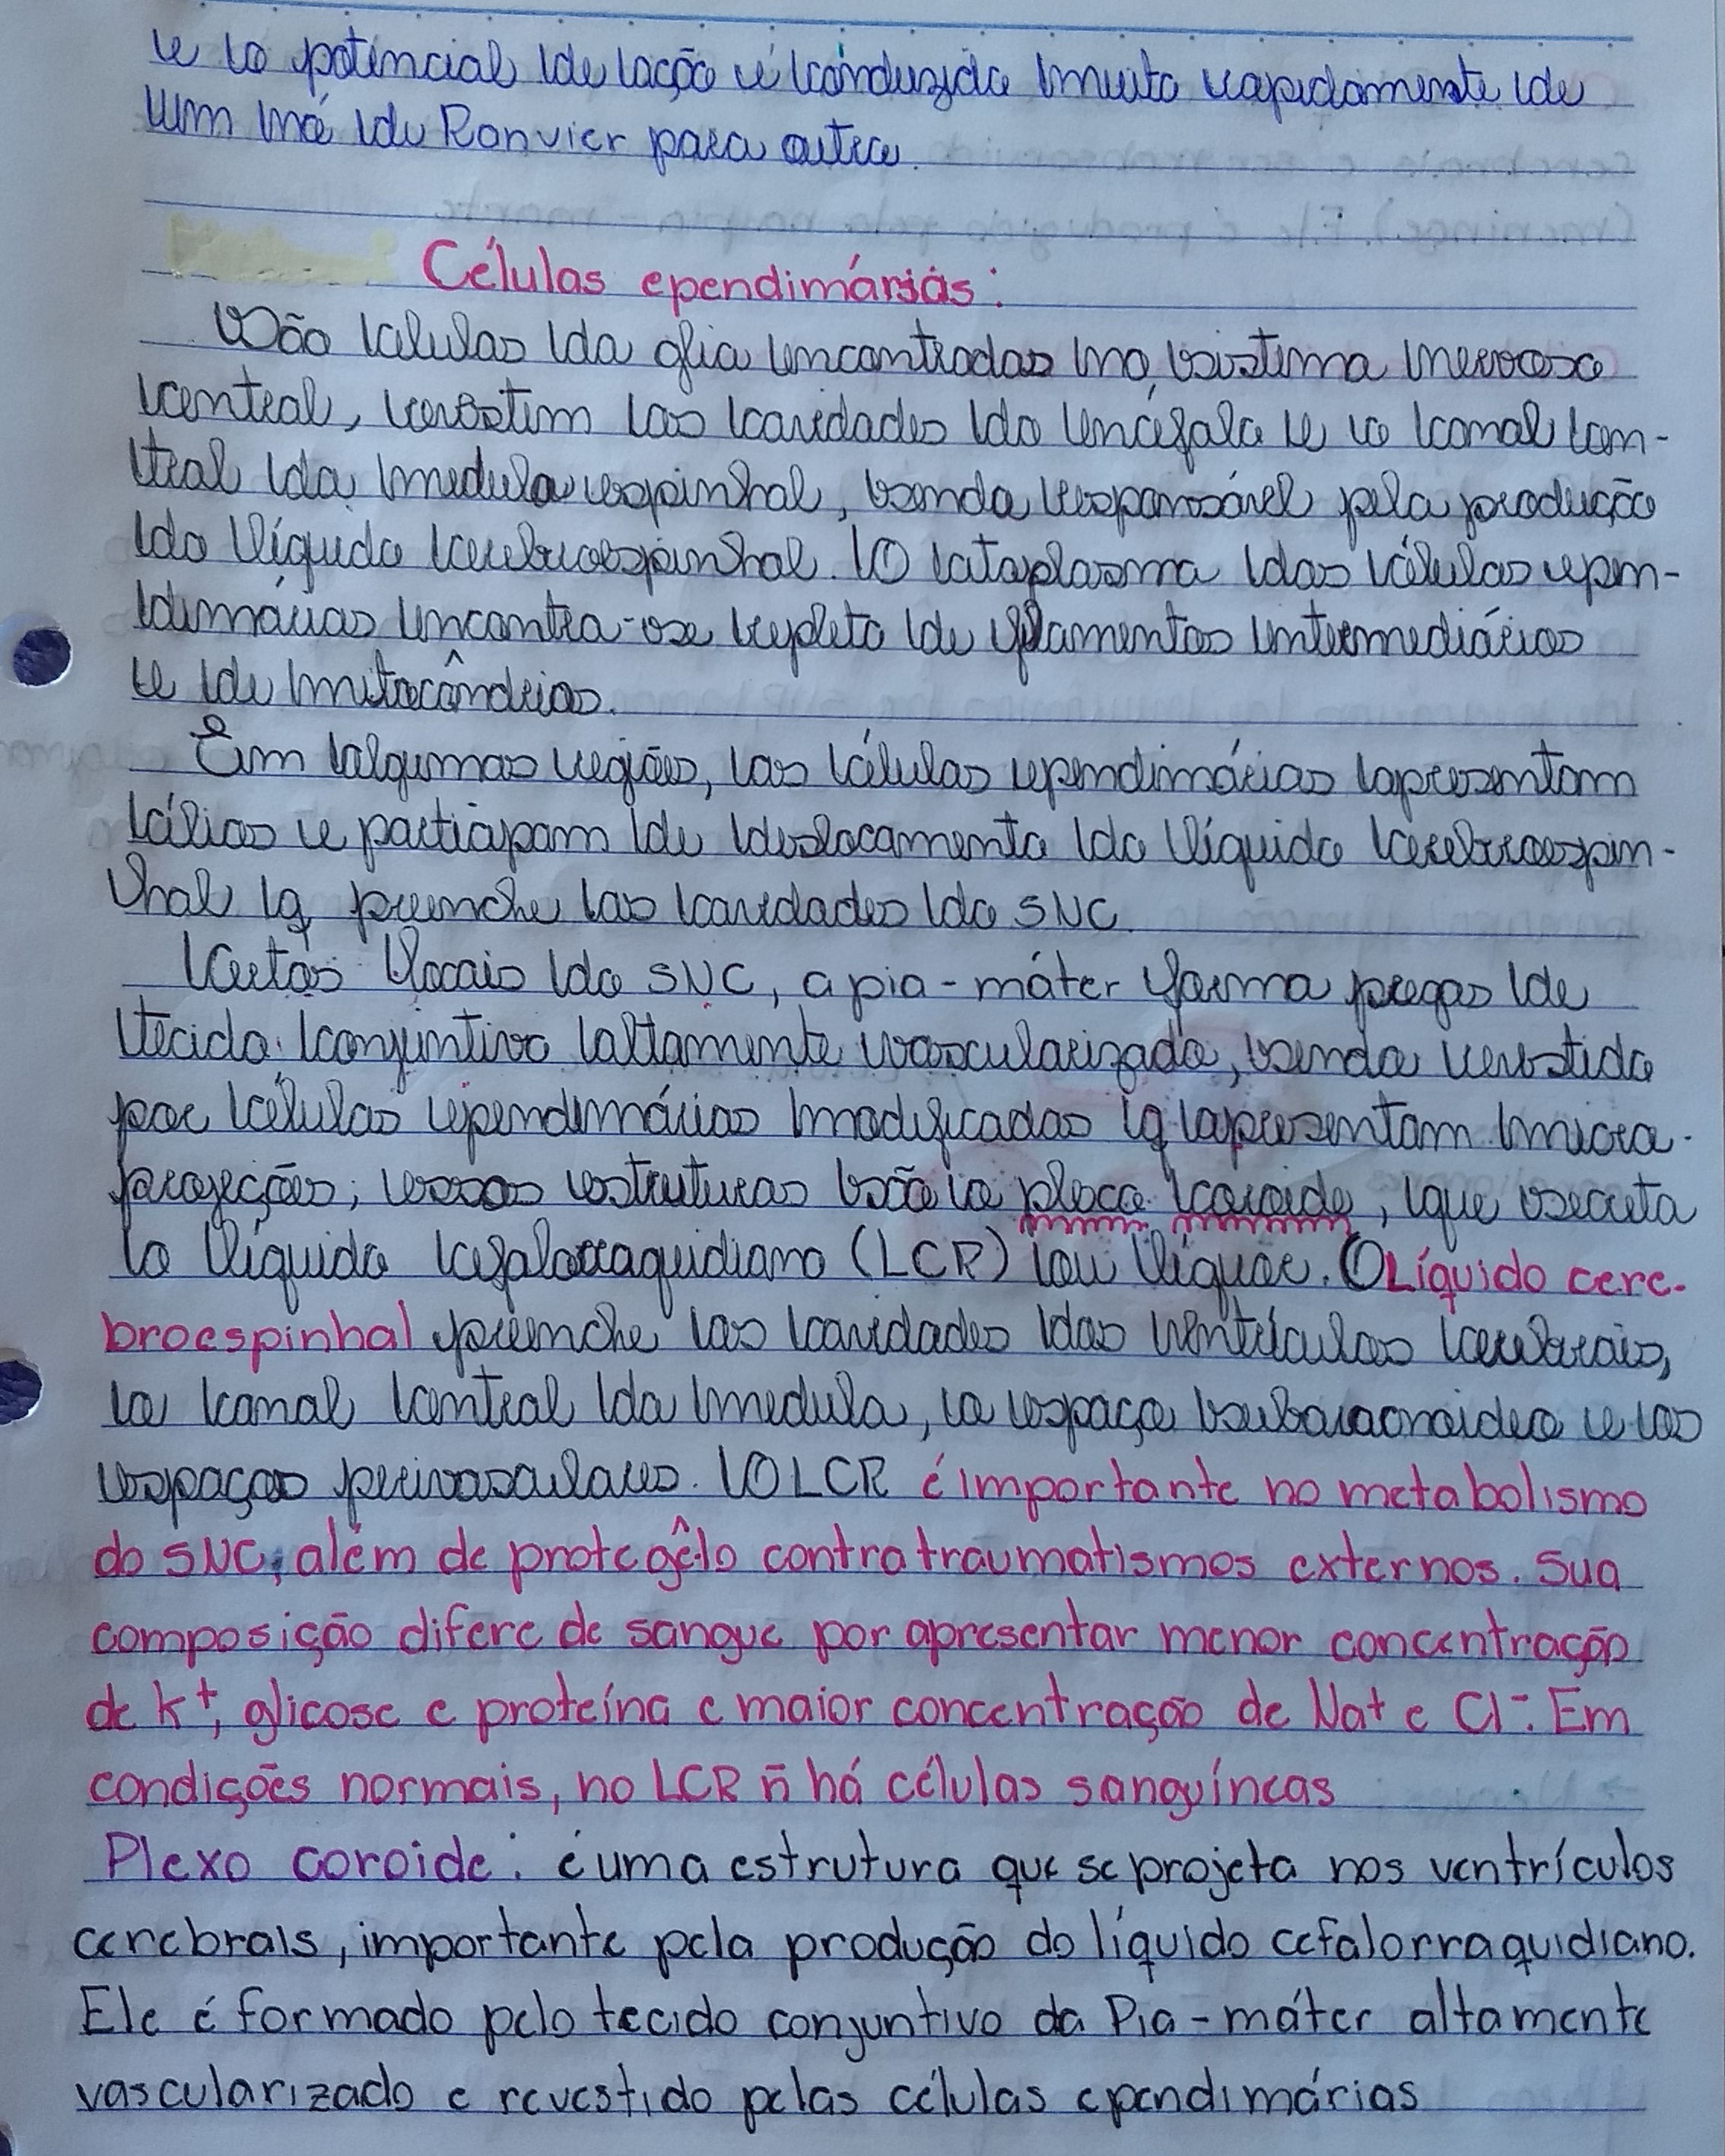 e o potencial de ação é conduzido muito rapidamente de
um nó de Ranvier para outro.
Células ependimárias:
São células da glia encontradas no sistema nervoso
central, revestem as cavidades do encéfalo e o canal cen-
tral da medula espinhal, sendo responsável pela produção
do líquido cerebroespinhal. O citoplasma das células epen-
dimárias encontra-se repleto de filamentos intermediários
e de mitocôndrias.
Em algumas regiões, as células ependimárias apresentam
cílios e participam de deslocamento do líquido cerebroespin-
hal q preenche as cavidades do SNC.
Certos locais do SNC, a pia-máter forma pregas de
tecido conjuntivo altamente vascularizado, sendo revestido
por células ependimárias modificadas q apresentam micro-
projeções; essas estruturas são o placo coroide, que secreta
o líquido cefalorraquidiano (LCR) ou líquor. O Líquido cere-
broespinhal preenche as cavidades dos ventrículos cerebrais,
o canal central da medula, o espaço subaracnoideo e os
espaços perivasculares. O LCR é importante no metabolismo
do SNC, além de protegê-lo contra traumatismos externos. Sua
composição difere de sangue por apresentar menor concentração
de K+, glicose e proteína e maior concentração de Na+ e Cl-. Em
condições normais, no LCR ñ há células sanguíneas
Plexo coroide: é uma estrutura que se projeta nos ventrículos
cerebrais, importante pela produção do líquido cefalorraquidiano.
Ele é formado pelo tecido conjuntivo da Pia-máter altamente
vascularizado e revestido pelas células ependimárias